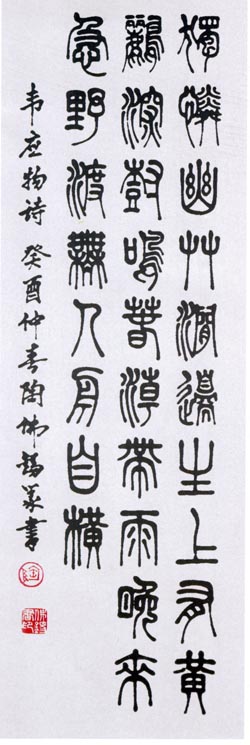 獨憐幽艸澗邊生上有黃
鸝深樹鳴春潮帶雨晚來
急野渡無人舟自橫
韦应物诗 癸酉仲春陶佛錫篆書
陶